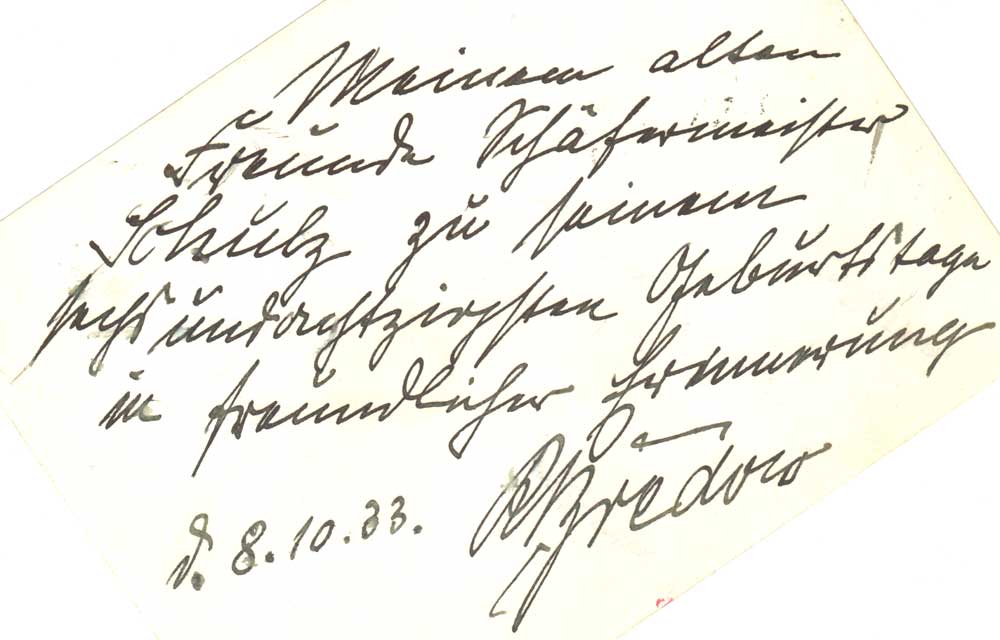 Meinem alten
Freunde Schäfermeister
Schulz zu seinem
sechsundachtzigsten Geburtstage
in freundlicher Erinnerung
Bredow
d. 8.10.33.